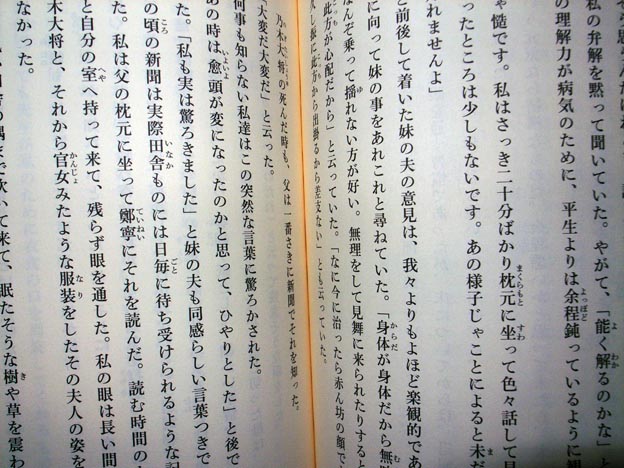 私の弁解を黙って聞いていた。やがて、「能く解るのかな」と
の理解力が病気のために、平生よりは余程鈍っているように
や慥です。私はさっき二十分ばかり枕元に坐って色々話して
たところは少しもないです。あの様子じゃことによると未だ
れませんよ」
と前後して着いた妹の夫の意見は、我々よりもよほど楽観的であ
に向って妹の事をあれこれと尋ねていた。「身体が身体だから無
なんぞ乗って揺れない方が好い。無理をして見舞に来られたりすると
此方が心配だから」と云っていた。「なに今に治ったら赤ん坊の顔で
久し振に此方から出掛るから差支ない」とも云っていた。
乃木大将の死んだ時も、父は一番さきに新聞でそれを知った。
大変だ大変だ」と云った。
何事も知らない私達はこの突然な言葉に驚ろかされた。
あの時は愈頭が変になったのかと思って、ひやりとした」と後で
た。「私も実は驚ろきました」と妹の夫も同感らしい言葉つきで
の頃の新聞は実際田舎ものには日毎に待ち受けられるような記
た。私は父の枕元に坐って鄭寧にそれを読んだ。読む時間の
と自分の室へ持って来て、残らず眼を通した。私の眼は長い間
木大将と、それから官女みたような服装をしたその夫人の姿を
なかった。
吹いて来て、眠たそうな樹や草を震わ